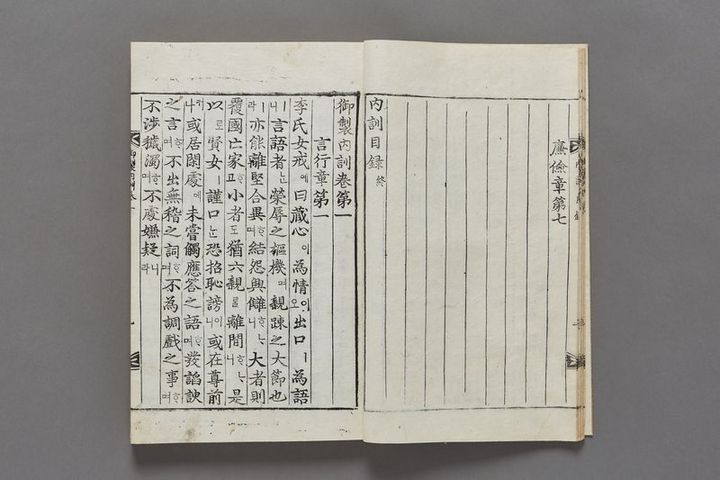 廉儉章第七
內訓目錄終
御製內訓卷第一
言行章第一
李氏女戒예曰藏心이為情이오出口ㅣ為語
ㅣ니言語者ᄂᆞᆫ榮辱之樞機며親踈之大節也
ㅣ라亦能離堅合異며結怨興讎ᄒᆞᄂᆞ니大者則
覆國亡家고小者도猶六親을離間ᄒᆞᄂᆞ니是
以로賢女ㅣ謹口ᄂᆞᆫ恐招恥謗이니或在尊前
나或居閑處에未嘗觸應答之語ᄒᆞ며發諂諛
之言ᄒᆞ며不出無稽之詞ᄒᆞ며不為調戲之事ᄒᆞ며
不涉穢濁ᄒᆞ며不處嫌疑니라